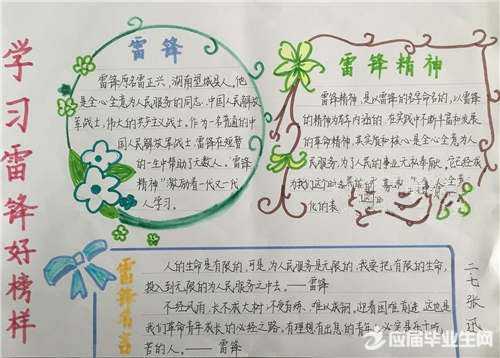 学习雷锋好榜样
雷锋
雷锋原名雷正兴，湖南望城县人。他
是全心全意为人民服务的同志，中国人民解放
军战士，伟大的共产主义战士。作为一名普通的中
国人民解军战士，雷锋在短暂
的一生中帮助了无数人。雷锋
精神"激励着一代又一代
人学习。
雷锋精神
雷锋精神，是以雷锋的名字命名的，以雷锋
的精神为基本内涵的，在实践中不断丰富和发展
的革命精神，其实质和核心是全心全意为人
民服务，为了人民的事业无私奉献。它已经成
为我们这
化的表
雷锋名言
人的生命是有限的，可是，为人民服务是无限的，我要把有限的生命，
投入到无限的为人民服务之中去。——雷锋
不经风雨，长不成大树；不受百炼，难以成钢。迎着困难前进，这也是
我们革命青年成长的必经之路。有理想有出息的青年，必定是乐于吃
苦的人。——雷锋
二七张迅
应届毕业生网